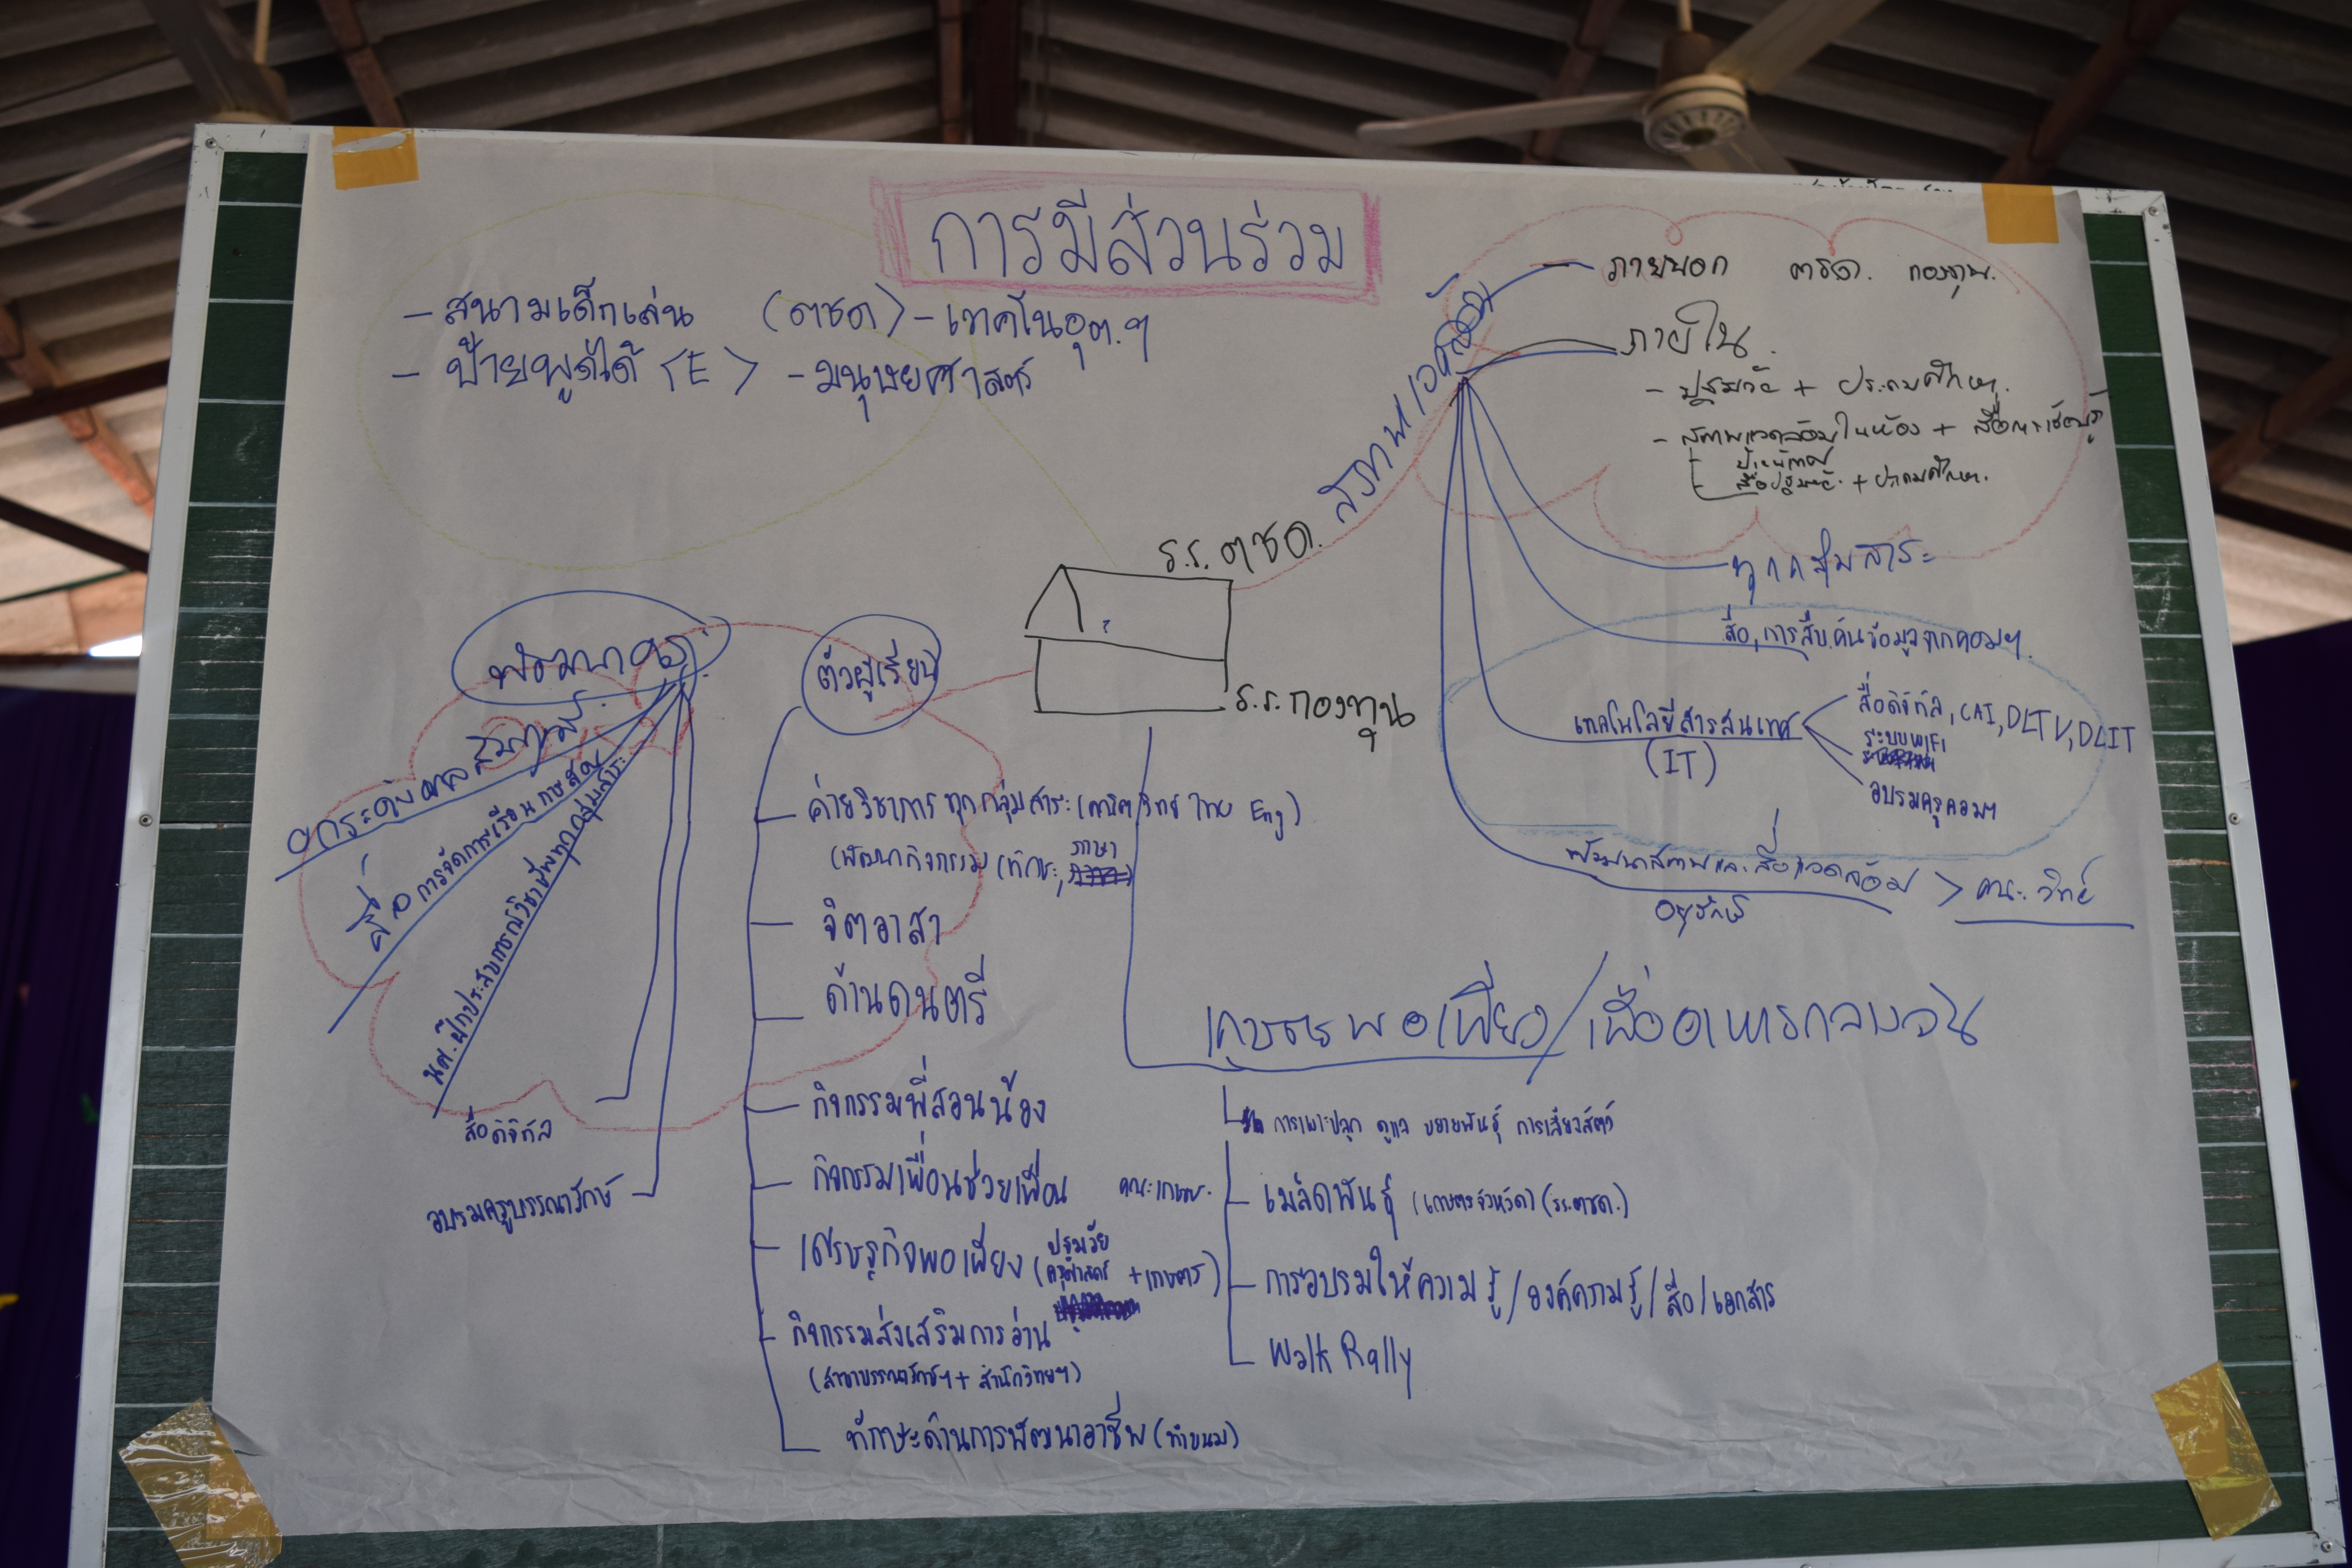 การมีส่วนร่วม
- สนามเด็กเล่น (ตชด) - เทคโนอุต.ฯ
- ป้ายพูดได้ <E> - มนุษยศาสตร์
สภาพแวดล้อม
ภายนอก ตชด. กองทุน.
ภายใน.
- ปฐมวัย + ประถมศึกษา.
- สภาพแวดล้อมในห้อง + สื่อการเรียนรู้
- ป้ายนิเทศ
- สื่อปฐมวัย + ประถมศึกษา.
ทุกกลุ่มสาระ
สื่อ, การสืบค้นข้อมูลจากคอมฯ.
เทคโนโลยีสารสนเทศ
(IT)
สื่อดิจิทัล, CAI, DLTV, DLIT
ระบบ WIFI
อบรมครูคอมฯ
พัฒนาสภาพและสิ่งแวดล้อม > คณะวิทย์
อนุรักษ์
ร.ร. ตชด.
?
ร.ร. กองทุน
พัฒนาครู
ยกระดับผลสัมฤทธิ์
สื่อการจัดการเรียนการสอน
นศ.ฝึกประสบการณ์วิชาชีพทุกกลุ่มสาระ
สื่อดิจิทัล
อบรมครูบรรณารักษ์
ตัวผู้เรียน
ค่ายวิชาการทุกกลุ่มสาระ (คณิต วิทย์ ไทย Eng)
(พัฒนากิจกรรม (ทักษะ, ภาษา)
จิตอาสา
ด้านดนตรี
กิจกรรมพี่สอนน้อง
กิจกรรมเพื่อนช่วยเพื่อน
เศรษฐกิจพอเพียง (ปฐมวัย ครุศาสตร์ + เกษตร)
กิจกรรมส่งเสริมการอ่าน
(สาขาบรรณารักษ์ฯ + สำนักวิทยฯ)
ทักษะด้านการพัฒนาอาชีพ (ทำขนม)
เกษตรพอเพียง / เพื่ออาหารกลางวัน
การเพาะปลูก ดูแล ขยายพันธุ์ การเลี้ยงสัตว์
คณะเกษตร.
เมล็ดพันธุ์ (เกษตรจังหวัด) (รร.ตชด.)
การอบรมให้ความรู้ / องค์ความรู้ / สื่อ / เอกสาร
Walk Rally